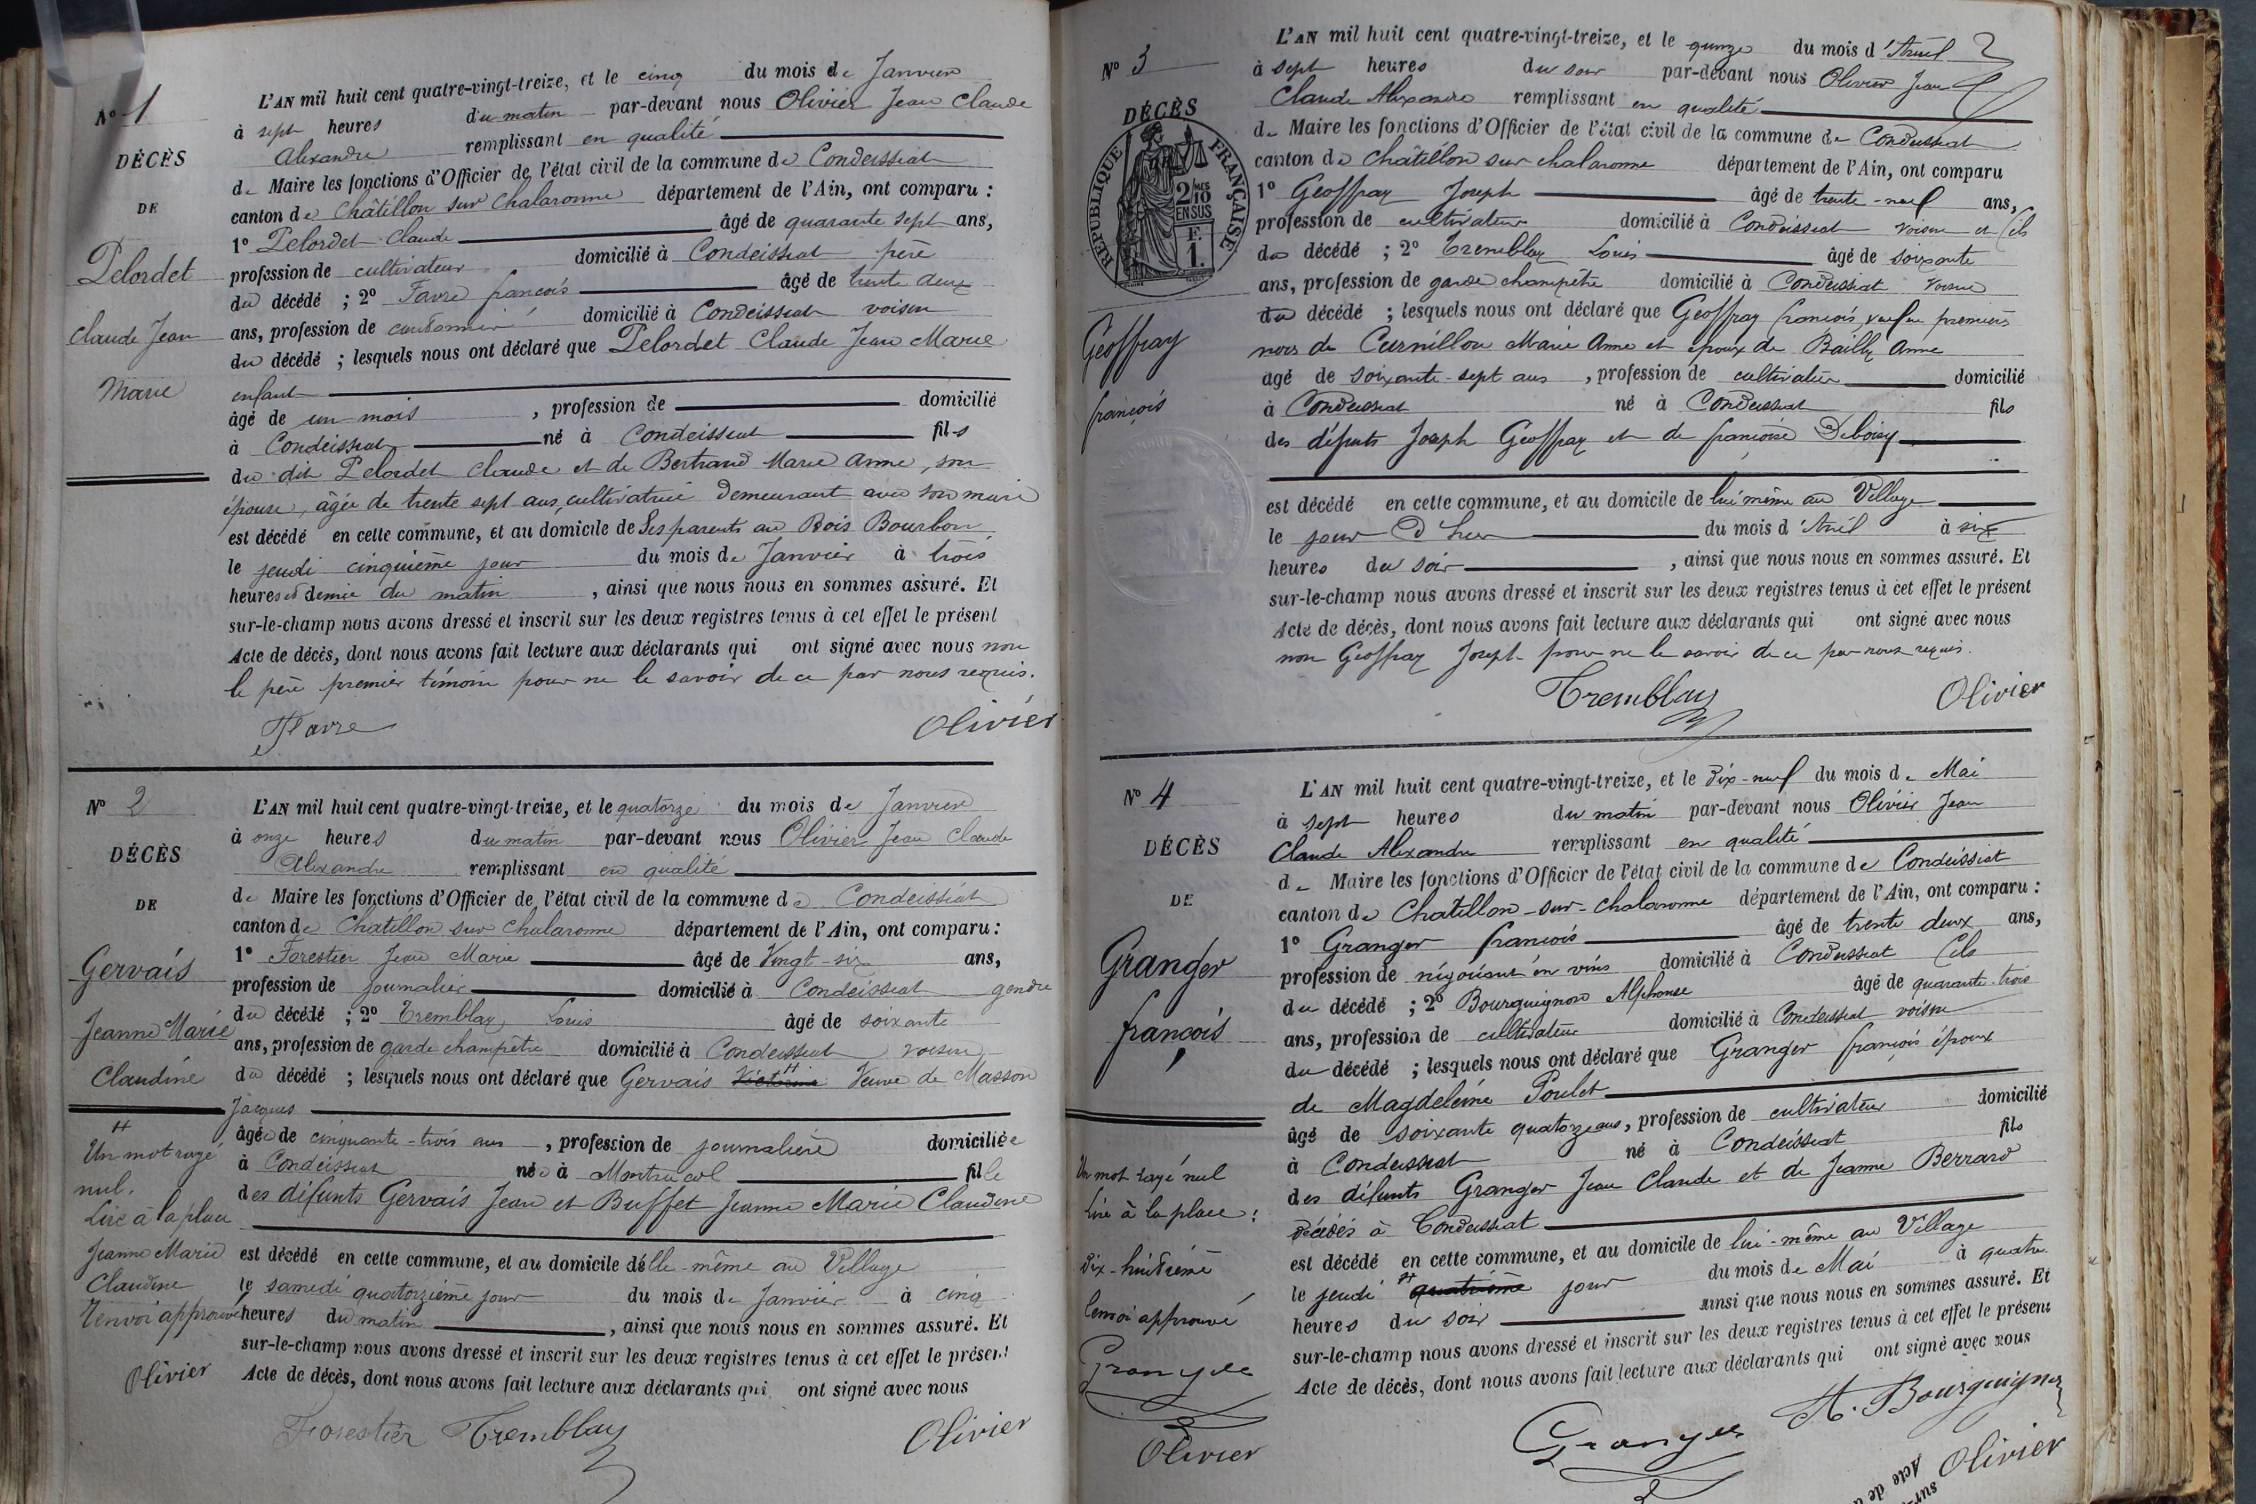 Nº 1
DÉCÈS
DE
Pelordet
Claude Jean
Marie
L'AN mil huit cent quatre-vingt-treize, et le cinq du mois de Janvier
à sept heures du matin par-devant nous Olivier Jean Claude
Alexandre remplissant en qualité
de Maire les fonctions d'Officier de l'état civil de la commune de Condeissiat
canton de Châtillon sur Chalaronne département de l'Ain, ont comparu :
1º Pelordet Claude âgé de quarante sept ans,
profession de cultivateur domicilié à Condeissiat père
du décédé ; 2º Favre françois âgé de trente deux
ans, profession de cordonnier domicilié à Condeissiat voisin
du décédé ; lesquels nous ont déclaré que Pelordet Claude Jean Marie
enfant
âgé de un mois , profession de domicilié
à Condeissiat né à Condeissiat fils
du dit Pelordet Claude et de Bertrand Marie Anne, son
épouse, âgée de trente sept ans, cultivatrice demeurant avec son mari
est décédé en cette commune, et au domicile de Ses parents au Bois Bourbon
le jeudi cinquième jour du mois de Janvier à trois
heures et demie du matin , ainsi que nous nous en sommes assuré. Et
sur-le-champ nous avons dressé et inscrit sur les deux registres tenus à cet effet le présent
Acte de décès, dont nous avons fait lecture aux déclarants qui ont signé avec nous non
le père premier témoin pour ne le savoir de ce par nous requis.
Favre Olivier
Nº 2
DÉCÈS
DE
Gervais
Jeanne Marie
Claudine
Un mot rayé
nul.
Lire à la place
Jeanne Marie
Claudine
Renvoi approuvé
Olivier
L'AN mil huit cent quatre-vingt-treize, et le quatorze du mois de Janvier
à onze heures du matin par-devant nous Olivier Jean Claude
Alexandre remplissant en qualité
de Maire les fonctions d'Officier de l'état civil de la commune de Condeissiat
canton de Chatillon sur Chalaronne département de l'Ain, ont comparu :
1º Forestier Jean Marie âgé de Vingt-six ans,
profession de journalier domicilié à Condeissiat gendre
du décédé ; 2º Tremblay Louis âgé de soixante
ans, profession de garde champêtre domicilié à Condeissiat voisin
du décédé ; lesquels nous ont déclaré que Gervais Victorine Veuve de Masson
Jacques
âgée de cinquante-trois ans , profession de journalière domiciliée
à Condeissiat née à Montracol fille
des défunts Gervais Jean et Buffet Jeanne Marie Claudine
est décédé en cette commune, et au domicile d'elle-même au Village
le samedi quatorzième jour du mois de Janvier à cinq
heures du matin , ainsi que nous nous en sommes assuré. Et
sur-le-champ nous avons dressé et inscrit sur les deux registres tenus à cet effet le présent
Acte de décès, dont nous avons fait lecture aux déclarants qui ont signé avec nous
Forestier Tremblay Olivier
Nº 3
DÉCÈS
RÉPUBLIQUE FRANÇAISE
2/10 MES
EN SUS
F.
1.
Geoffray
françois
L'AN mil huit cent quatre-vingt-treize, et le quinze du mois d'Avril
à sept heures du soir par-devant nous Olivier Jean
Claude Alexandre remplissant en qualité
de Maire les fonctions d'Officier de l'état civil de la commune de Condeissiat
canton de Châtillon sur Chalaronne département de l'Ain, ont comparu
1º Geoffray Joseph âgé de trente-neuf ans,
profession de cultivateur domicilié à Condeissiat voisin et fils
du décédé ; 2º Tremblay Louis âgé de soixante
ans, profession de garde champêtre domicilié à Condeissiat voisin
du décédé ; lesquels nous ont déclaré que Geoffray françois, veuf en premières
noces de Curnillon Marie Anne et époux de Bailly Anne
âgé de soixante-sept ans , profession de cultivateur domicilié
à Condeissiat né à Condeissiat fils
des défunts Joseph Geoffray et de françoise Deboisy
est décédé en cette commune, et au domicile de lui même au Village
le jour d'hier du mois d'Avril à six
heures du soir , ainsi que nous nous en sommes assuré. Et
sur-le-champ nous avons dressé et inscrit sur les deux registres tenus à cet effet le présent
Acte de décès, dont nous avons fait lecture aux déclarants qui ont signé avec nous
non Geoffray Joseph pour ne le savoir de ce par nous requis.
Tremblay Olivier
Nº 4
DÉCÈS
DE
Granger
françois
Un mot rayé nul
lire à la place :
dix-huitième
renvoi approuvé
Granger
Olivier
L'AN mil huit cent quatre-vingt-treize, et le dix-neuf du mois de Mai
à sept heures du matin par-devant nous Olivier Jean
Claude Alexandre remplissant en qualité
de Maire les fonctions d'Officier de l'état civil de la commune de Condeissiat
canton de Chatillon-sur-Chalaronne département de l'Ain, ont comparu :
1º Granger françois âgé de trente deux ans,
profession de négociant en vins domicilié à Condeissiat fils
du décédé ; 2º Bourguignon Alphonse âgé de quarante-trois
ans, profession de cultivateur domicilié à Condeissiat voisin
du décédé ; lesquels nous ont déclaré que Granger françois époux
de Magdeleine Poulet
âgé de soixante quatorze ans, profession de cultivateur domicilié
à Condeissiat né à Condeissiat fils
des défunts Granger Jean Claude et de Jeanne Berrard
décédés à Condeissiat
est décédé en cette commune, et au domicile de lui-même au Village
le jeudi quatrième jour du mois de Mai à quatre
heures du soir ainsi que nous nous en sommes assuré. Et
sur-le-champ nous avons dressé et inscrit sur les deux registres tenus à cet effet le présent
Acte de décès, dont nous avons fait lecture aux déclarants qui ont signé avec nous
Granger A. Bourguignon
Olivier
sur-
Acte de d